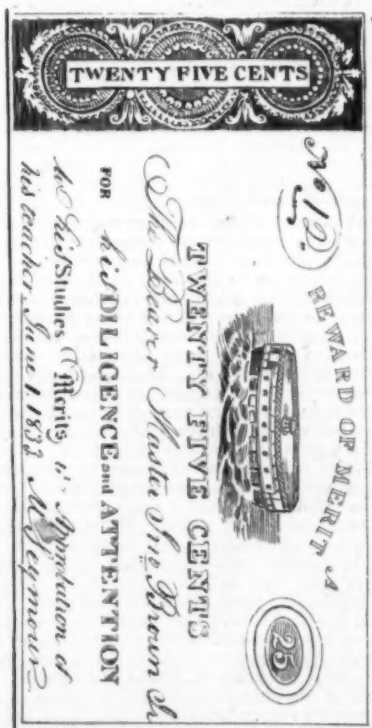 TWENTY FIVE CENTS
No 12
REWARD OF MERIT
25
TWENTY FIVE CENTS
The Bearer Master Jno Brown Jr
FOR his DILIGENCE and ATTENTION
to his Studies Merits ye Approbation of
his teacher June 1. 1833 M Seymour